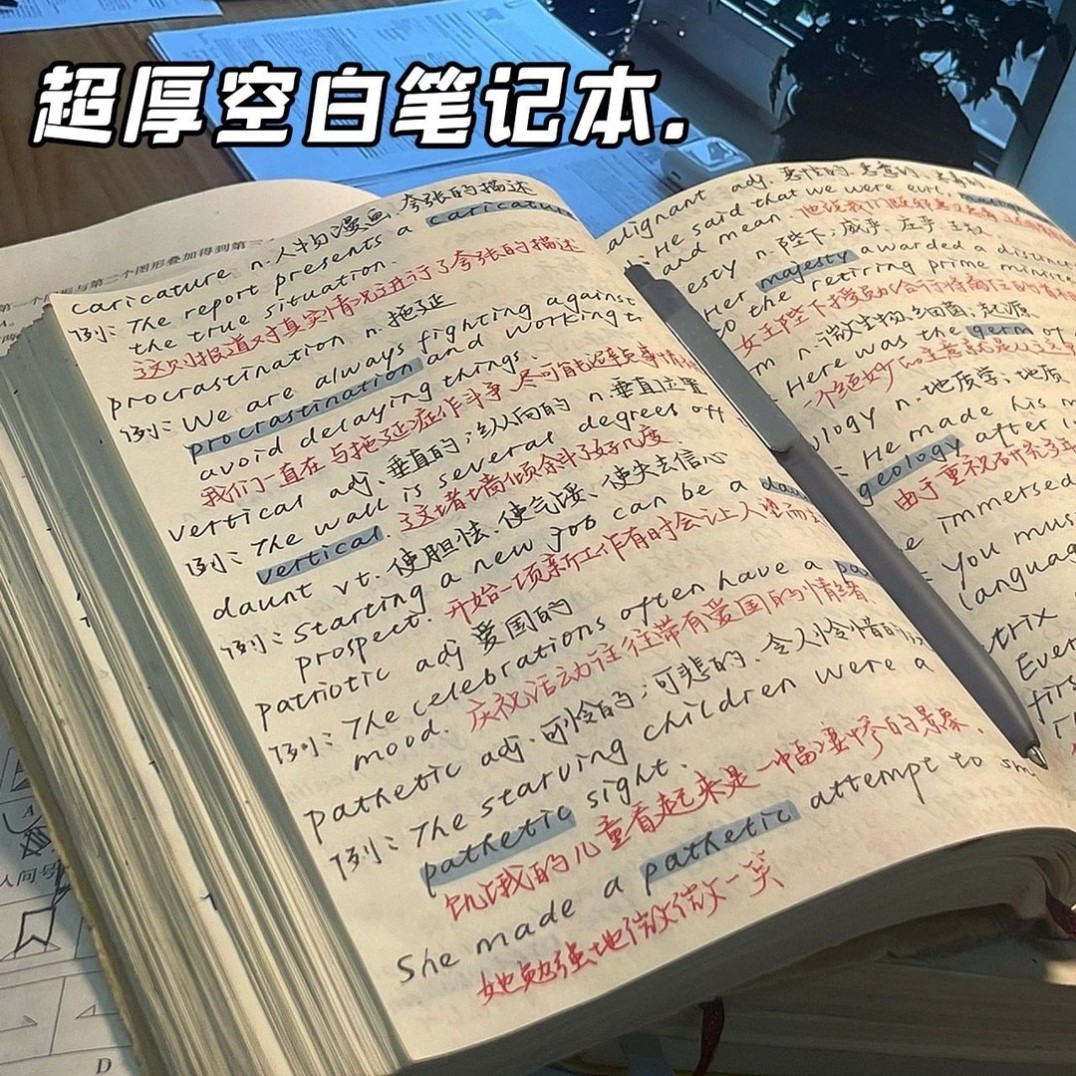 超厚空白笔记本.
caricature n.人物漫画、夸张的描述
例: The report presents a caricature
the true situation.
这则报道对真实情况进行了夸张的描述
procrastination n. 拖延
例: We are always fighting against
procrastination and working to
avoid delaying things.
我们一直在与拖延症作斗争 尽可能避免事情
vertical adj. 垂直的;纵向的 n.垂直位置
例: The wall is several degrees off
vertical. 这堵墙倾斜了好几度.
daunt vt. 使胆怯、使气馁、使失去信心
例: Starting a new job can be a
prospect. 开始一项新工作有时会让人望而
patriotic adj 爱国的
例: The celebrations often have a
mood. 庆祝活动往往带有爱国的情绪.
pathetic adj. 可怜的;可悲的、令人怜惜的
例: The starving children were a
pathetic sight.
饥饿的儿童看起来是一幅凄惨的景象.
She made a pathetic attempt to
她勉强地微微一笑
alignant adj.
: He said that we were evil,
and mean
esty n.陛下;威严、庄严
Her majesty awarded a
to the retiring prime
女王陛下
m n.微生物、细菌;起源
Here was the germ of
一个绝妙
ology n.地质学;地质
: He made his
geology after
由于重视研究
immersed
You must
language
trix
Ever
firs
第一个图形与第二个图形叠加得到第三
D